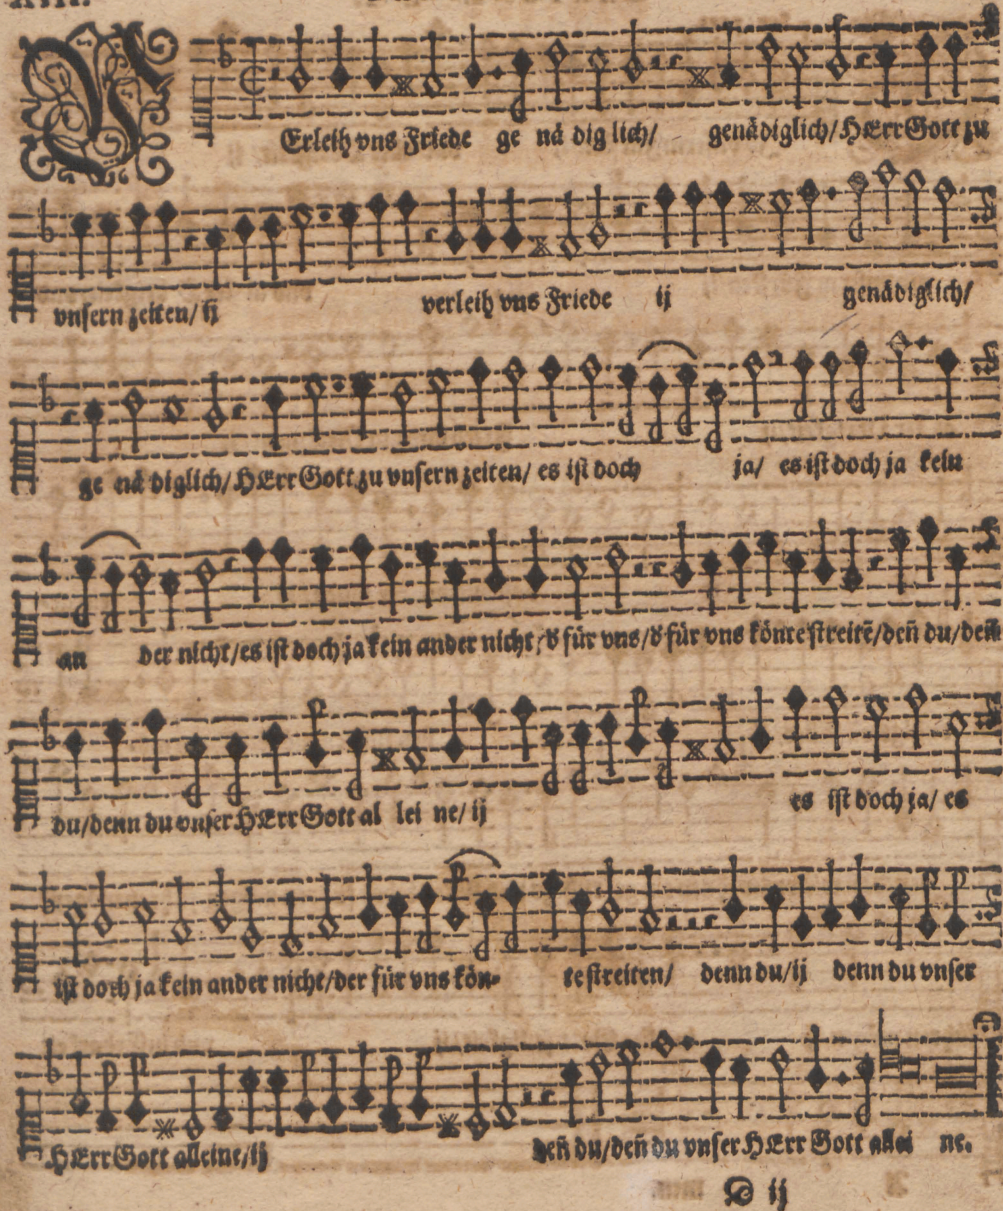 VErleih vns Friede ge nä dig lich/ genädiglich/HErrGott zu
vnsern zeiten/ ij verleih vns Friede ij genädiglich/
ge nä diglich/HErrGott zu vnsern zeiten/ es ist doch ja/ es ist doch ja kein
an der nicht/es ist doch ja kein ander nicht/ď für vns/ď für vns könte streitẽ/deñ du/deñ
du/denn du vnser HErrGott al lei ne/ ij es ist doch ja/ es
ist doch ja kein ander nicht/der für vns kön- te streiten/ denn du/ij denn du vnser
HErrGott alleine/ij deñ du/deñ du vnser HErr Gott allei ne.
D ij